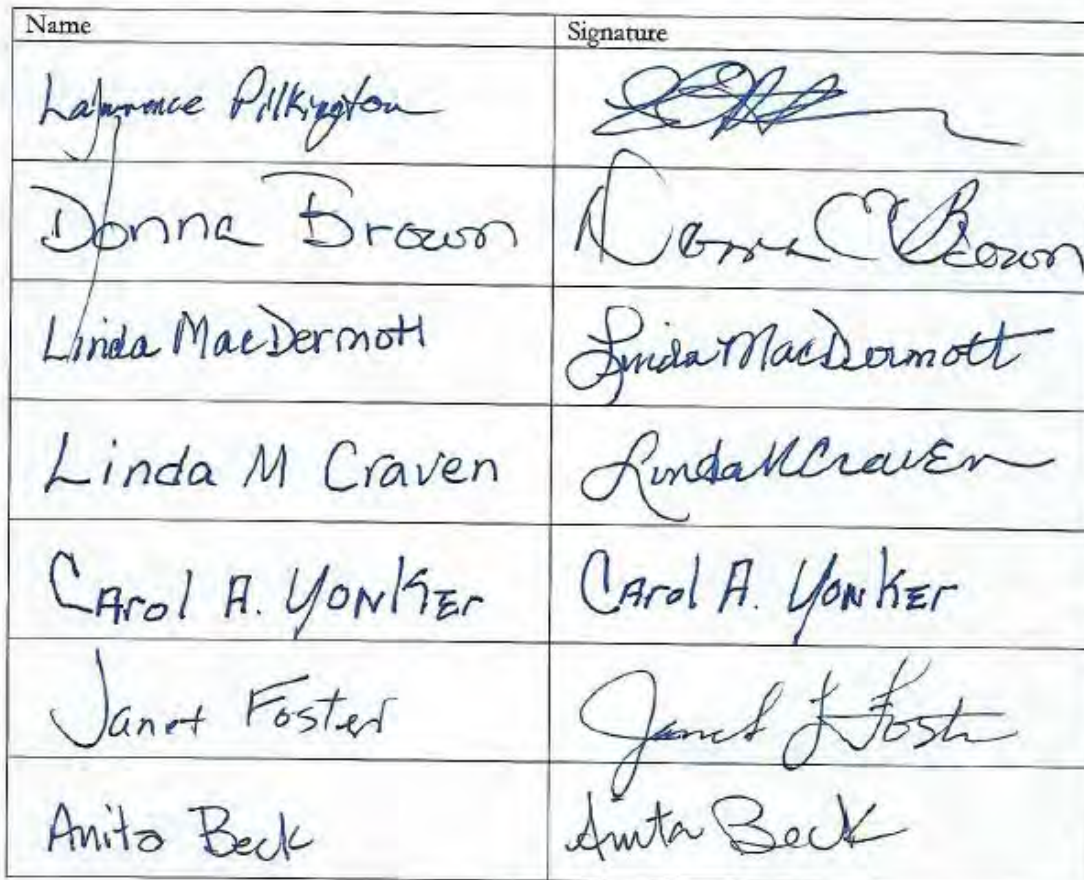 Name Signature
Lawrence Pilkington
Donna Brown Donna C Brown
Linda MacDermott Linda MacDermott
Linda M Craven Linda M Craven
Carol A. Yonker Carol A. Yonker
Janet Foster Janet L Foster
Anita Beck Anita Beck